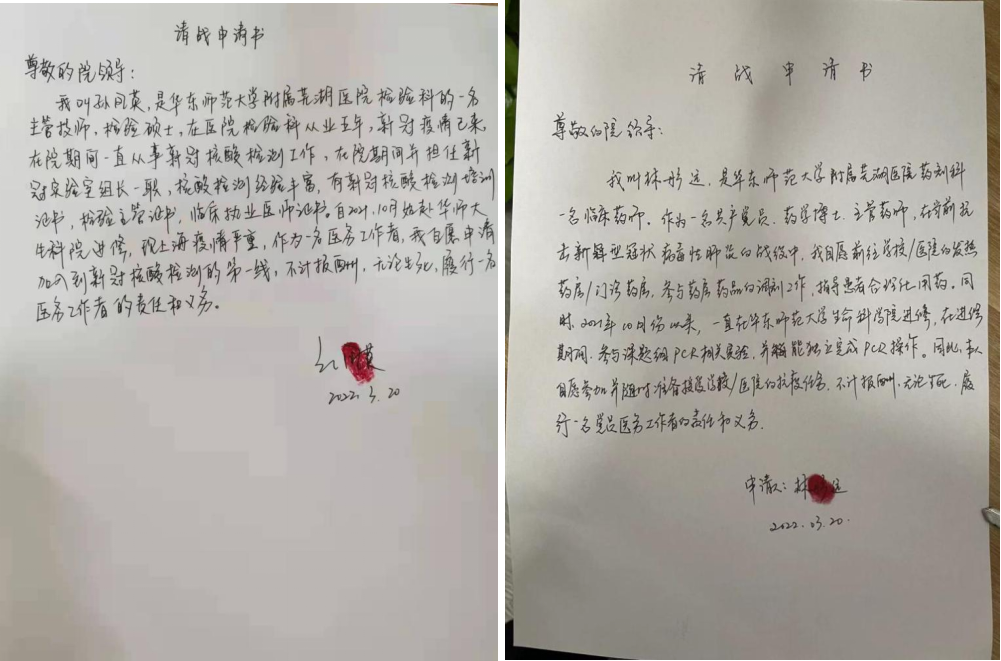 请战申请书
尊敬的院领导：
我叫孙同英，是华东师范大学附属芜湖医院检验科的一名
主管技师，检验硕士，在医院检验科从业五年，新冠疫情已来，
在院期间一直从事新冠核酸检测工作，在院期间并担任新
冠实验室组长一职，核酸检测经验丰富，有新冠核酸检测培训
证书，检验主管证书，临床执业医师证书。自2021.10月始赴华师大
生科院进修，现上海疫情严重，作为一名医务工作者，我自愿申请
加入到新冠核酸检测的第一线，不计报酬，无论生死，履行一名
医务工作者的责任和义务。
英
2022.3.20
请战申请书
尊敬的院领导：
我叫林彤远，是华东师范大学附属芜湖医院药剂科
一名临床药师。作为一名共产党员、药学博士、主管药师，在当前抗
击新型冠状病毒性肺炎的战役中，我自愿前往学校/医院的发热
药房/门诊药房，参与药房药品的调剂工作，指导患者合理使用药。同
时，2021年10月份以来，一直在华东师范大学生命科学院进修，在进修
期间，参与课题组PCR相关实验，并能独立完成PCR操作。因此，本人
自愿参加并随时准备接受学校/医院的抗疫任务，不计报酬，无论生死，履
行一名党员医务工作者的责任和义务。
申请人：林 远
2022.03.20.